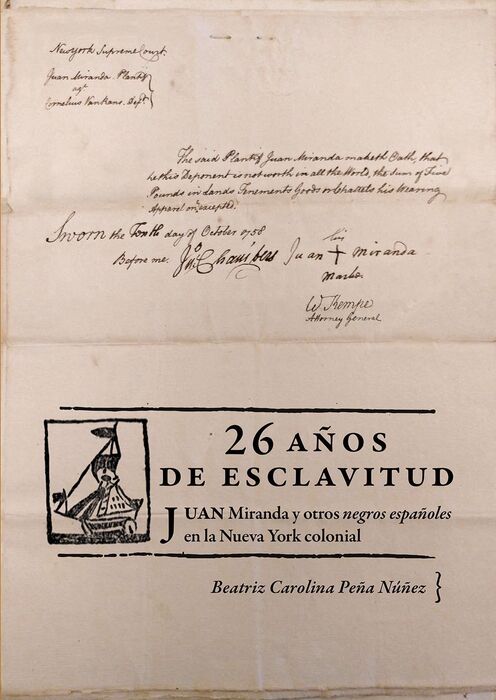 New York Supreme Court.
Juan Miranda. Plantif
agt
Cornelius Vankans. Deft
The said Plantif Juan Miranda maketh Oath, that
he this Deponent is not worth in all the World, the Sum of Five
Pounds in Lands Tenements Goods or Chattels his Wearing
Apparel only excepted.
Sworn the Tenth day of October 1758
Before me. Jno Chambers Juan + Miranda
his
Marke.
W Kempe
Attorney General
26 AÑOS
DE ESCLAVITUD
JUAN Miranda y otros negros españoles
en la Nueva York colonial
Beatriz Carolina Peña Núñez }